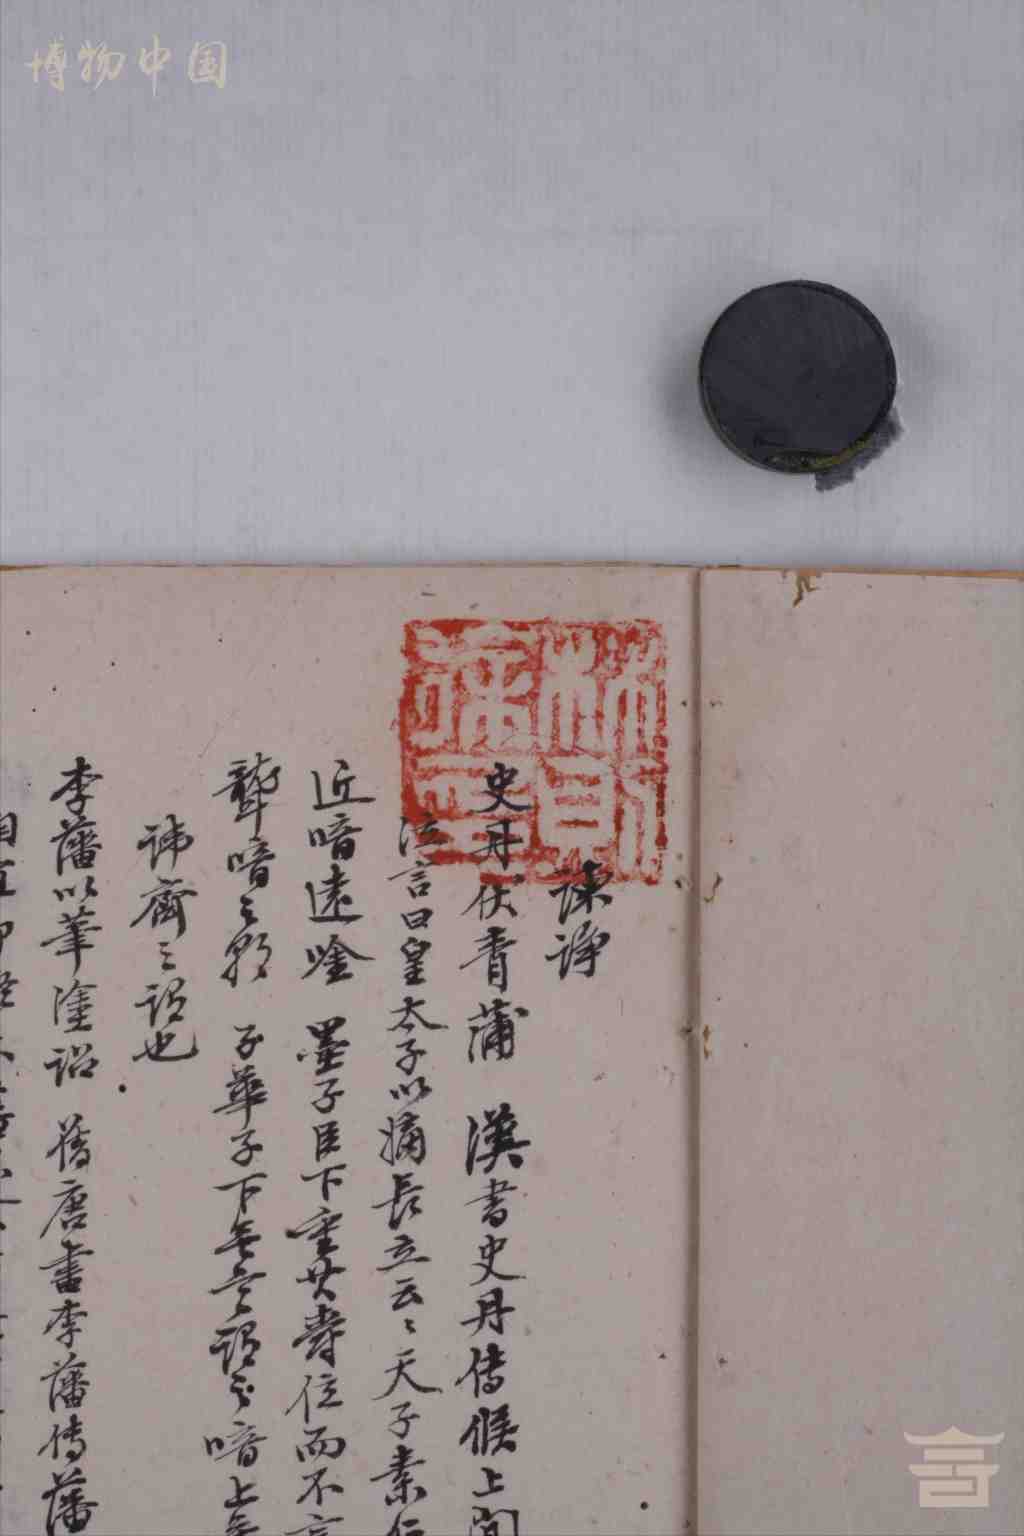 博物中国
諫諍
史丹伏青蒲 漢書史丹傳候上間
泣言曰皇太子以嫡長立云〻天子素仁
近喑遠唫 墨子臣下重其爵位而不言
聾喑之 子華子下無言謂之喑上無
謂也
李藩以筆塗詔 舊唐書李藩傳藩